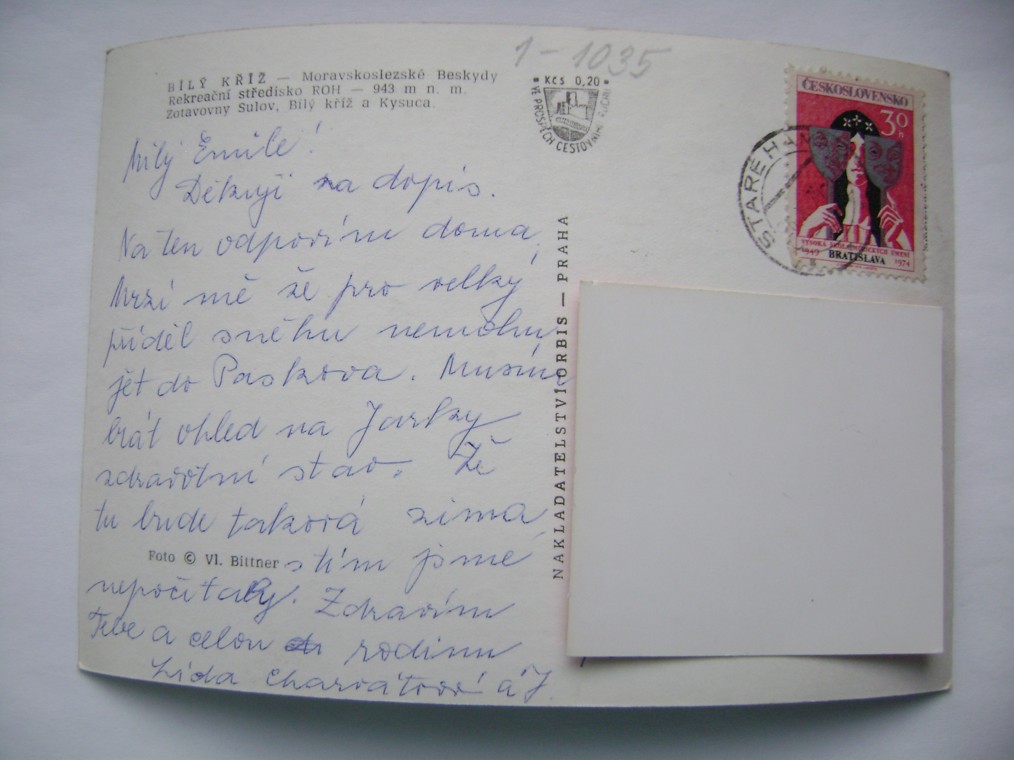 1-1035
BÍLÝ KŘÍŽ — Moravskoslezské Beskydy
Rekreační středisko ROH — 943 m n. m.
Zotavovny Sulov, Bílý kříž a Kysuca
Kčs 0,20
VE PROSPĚCH CESTOVNÍHO RUCHU
ČESKOSLOVENSKO
30
h
VYSOKÁ ŠKOLA MÚZICKÝCH UMENÍ
1949 BRATISLAVA 1974
STARÉ HAM
Milý Emile!
Děkuji za dopis.
Na ten odpovím doma,
Mrzí mě že pro velký
příděl sněhu nemohu
jet do Paskova. Musím
brát ohled na Jarky
zdravotní stav. Že
tu bude taková zima
s tím jsme
Foto © Vl. Bittner
nepočítaly. Zdravím
Tebe a celou rodinu
Lída Charvátová a J.
NAKLADATELSTVÍ ORBIS — PRAHA